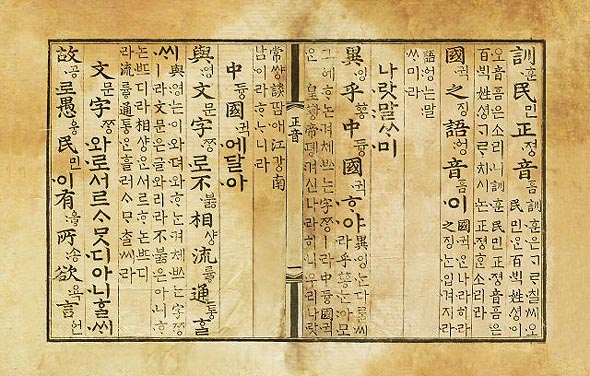 訓훈民민正졍音음
訓훈은ᄀᆞᄅᆞ칠씨오
民민ᄋᆞᆫ百ᄇᆡᆨ姓셩이
오音음은소리니訓훈民민正졍音음은
百ᄇᆡᆨ姓셩ᄀᆞᄅᆞ치시논正졍ᄒᆞᆫ소리라
國귁之징語ᅌᅥᆼ音음이
國귁ᄋᆞᆫ나라히라
之징ᄂᆞᆫ입겨지라
語ᅌᅥᆼ는말
ᄊᆞ미라
나랏말ᄊᆞ미
異잉乎ᅘᅩᆼ中듀ᇰ國귁ᄒᆞ야
異잉ᄂᆞᆫ다ᄅᆞᆯ씨
라乎ᅘᅩᆼᄂᆞᆫ아모
그ᅌᅦᄒᆞ논겨체ᄡᅳ는字ᄍᆞᆼㅣ라中듀ᇰ國귁
은皇황帝뎽겨신나라히니우리나랏
正音
常쌰ᇰ談땀애江가ᇰ南
남이라ᄒᆞᄂᆞ니라
中듀ᇰ國귁에달아
與영文문字ᄍᆞᆼ로不부ᇙ相샤ᇰ流류ᇢ通토ᇰᄒᆞᆯ
씨
與영는이와뎌와ᄒᆞ는겨체ᄡᅳ는字ᄍᆞᆼ
ㅣ라文문은글와리라不부ᇙ은아니ᄒᆞ
논ᄠᅳ디라相샤ᇰᄋᆞᆫ서르ᄒᆞ논ᄠᅳ디
라流류ᇢ通토ᇰ은흘러ᄉᆞᄆᆞᄎᆞᆯ씨라
文문字ᄍᆞᆼ와로서르ᄉᆞᄆᆞᆺ디아니ᄒᆞᆯᄊᆡ
故공로愚ᅌᅮᆼ民민이有우ᇢ所송欲욕言언